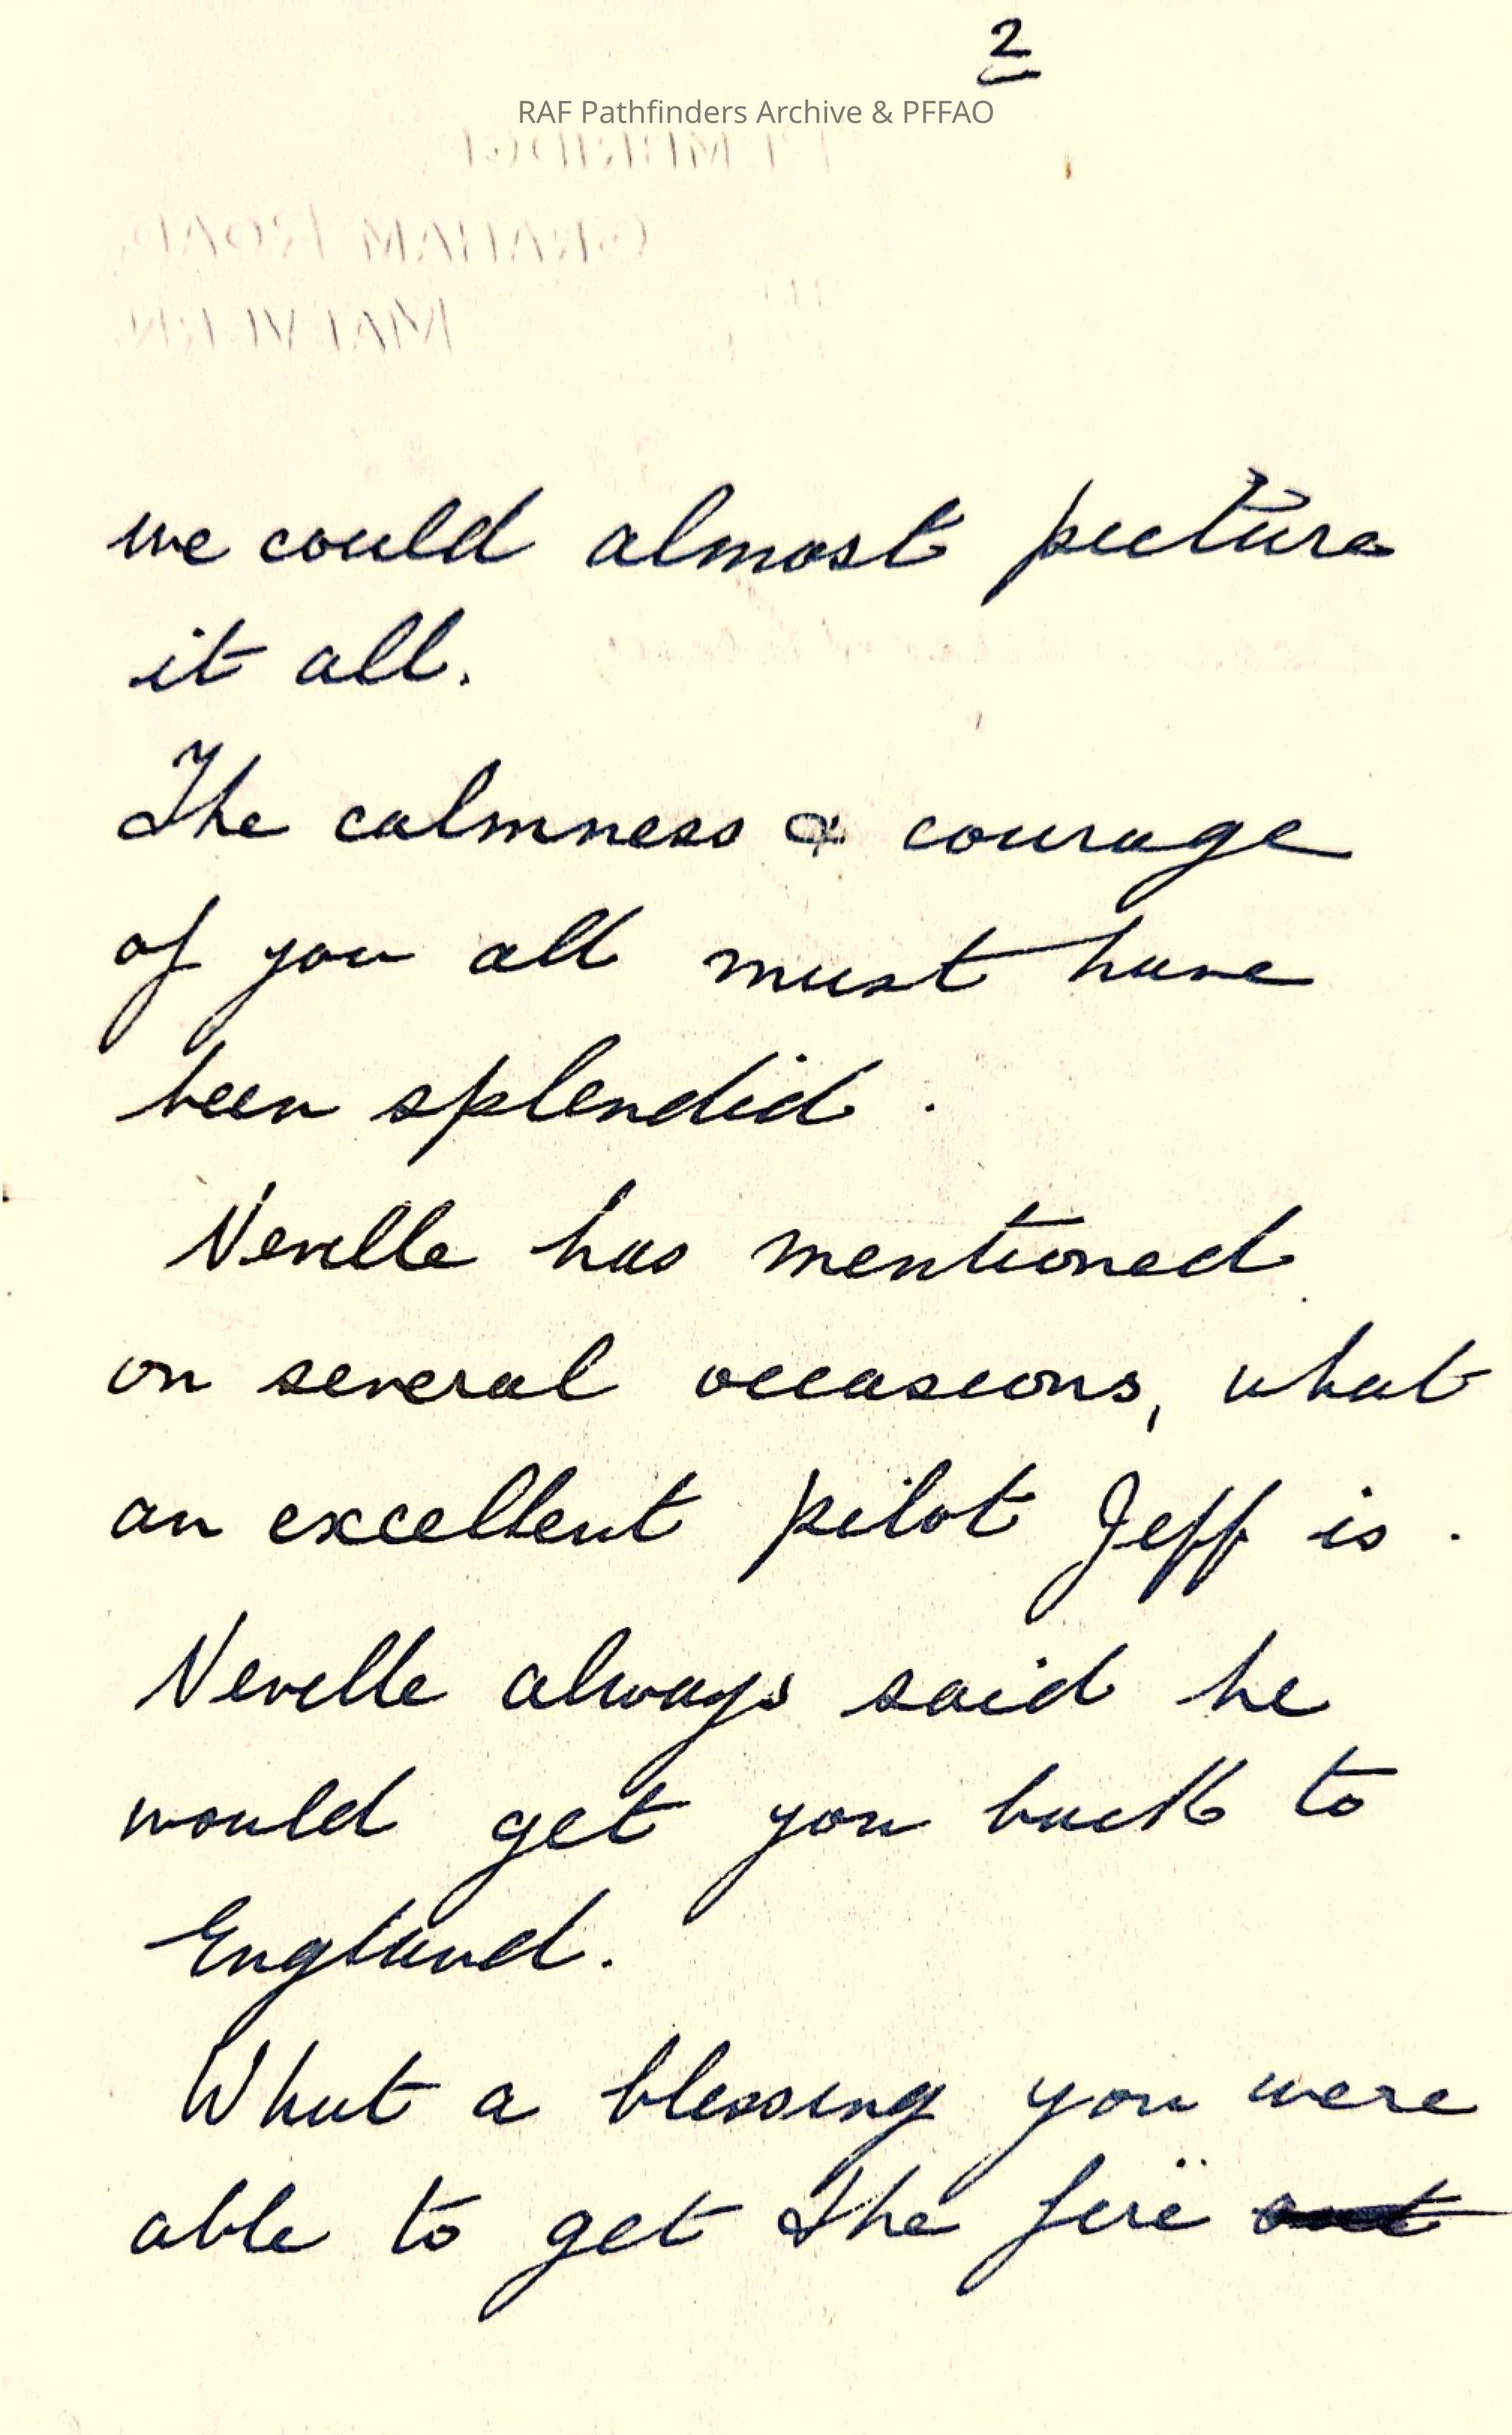 2
RAF Pathfinders Archive & PFFAO
we could almost picture
it all.
The calmness & courage
of you all must have
been splendid.
Neville has mentioned
on several occasions, what
an excellent pilot Jeff is.
Neville always said he
would get you back to
England.
What a blessing you were
able to get the fire out